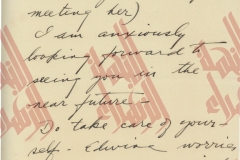 meeting her)
I am anxiously
looking forward to
seeing you in the
near future –
Do take care of your-
self. Edwina worries